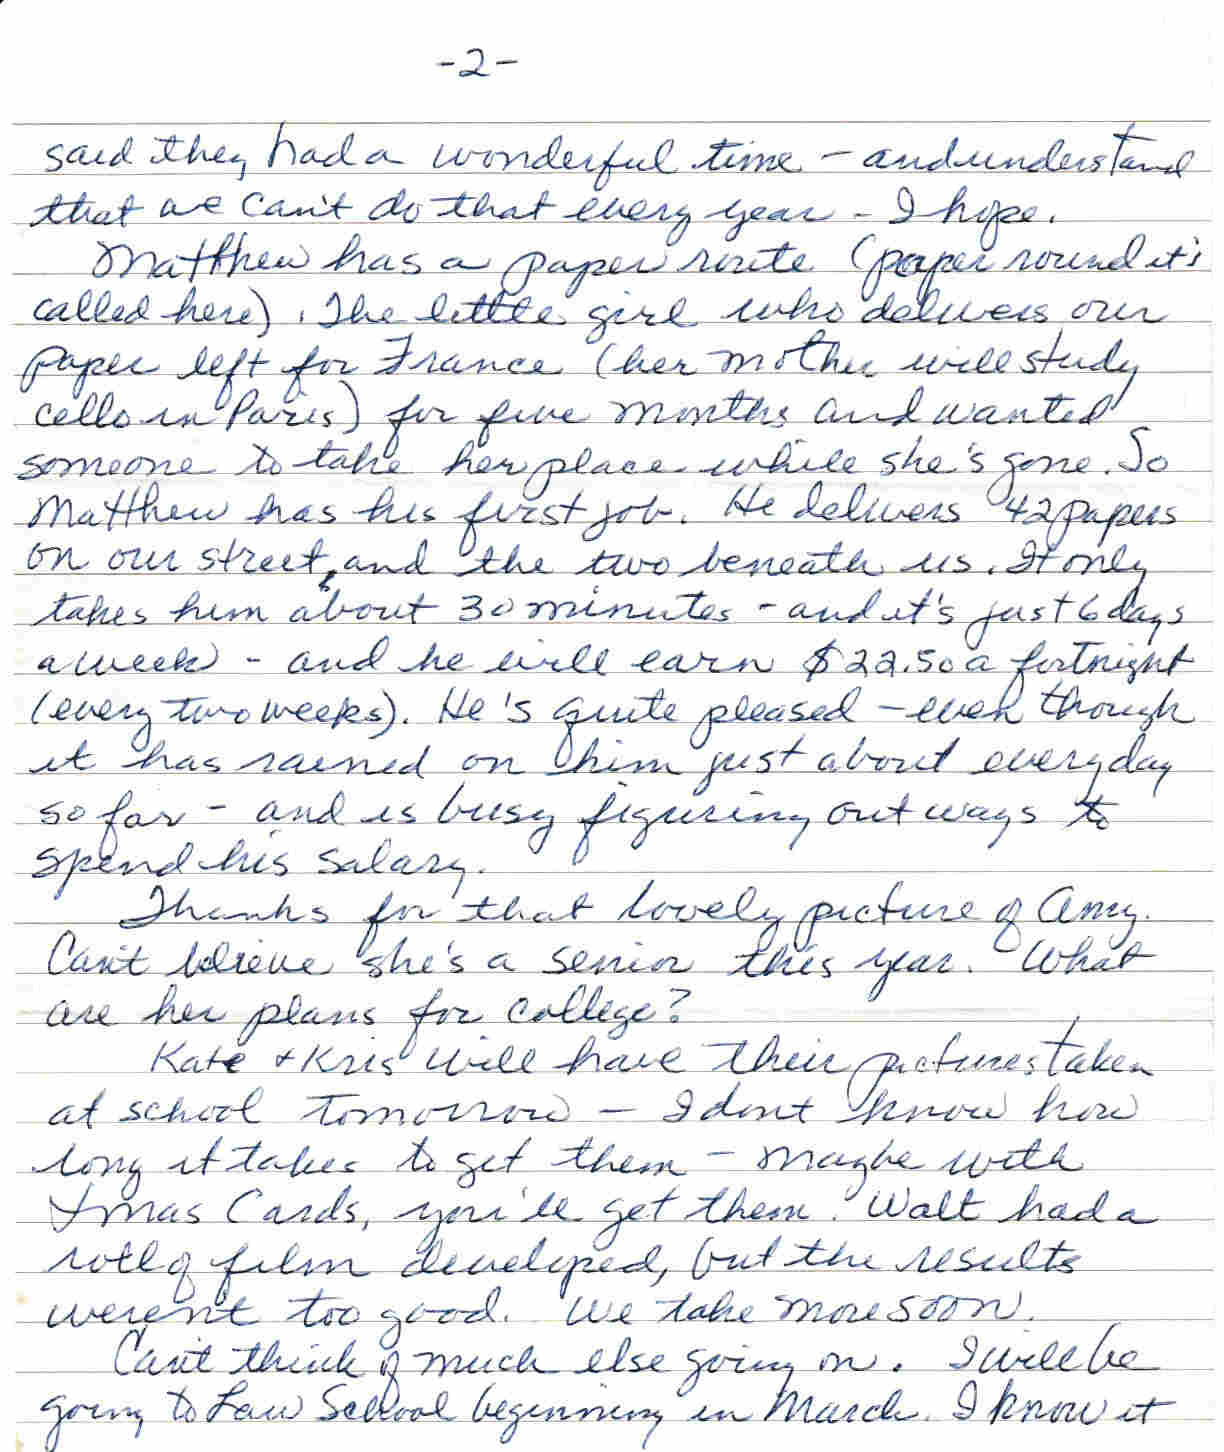 -2-
said they had a wonderful time - and understand
that we can't do that every year - I hope.
Matthew has a paper route (paper round it's
called here). The little girl who delivers our
paper left for France (her mother will study
cello in Paris) for five months and wanted
someone to take her place while she's gone. So
Matthew has his first job. He delivers 42 papers
on our street, and the two beneath us. It only
takes him about 30 minutes - and it's just 6 days
a week - and he will earn $22.50 a fortnight
(every two weeks). He's quite pleased - even though
it has rained on him just about everyday
so far - and is busy figuring out ways to
spend his salary.
Thanks for that lovely picture of Amy.
Can't believe she's a senior this year. What
are her plans for college?
Kate + Kris will have their pictures taken
at school tomorrow - I dont know how
long it takes to get them - maybe with
Xmas Cards, you'll get them. Walt had a
roll of film developed, but the results
weren't too good. We take more soon.
Can't think of much else going on. I will be
going to Law School beginning in March. I know it